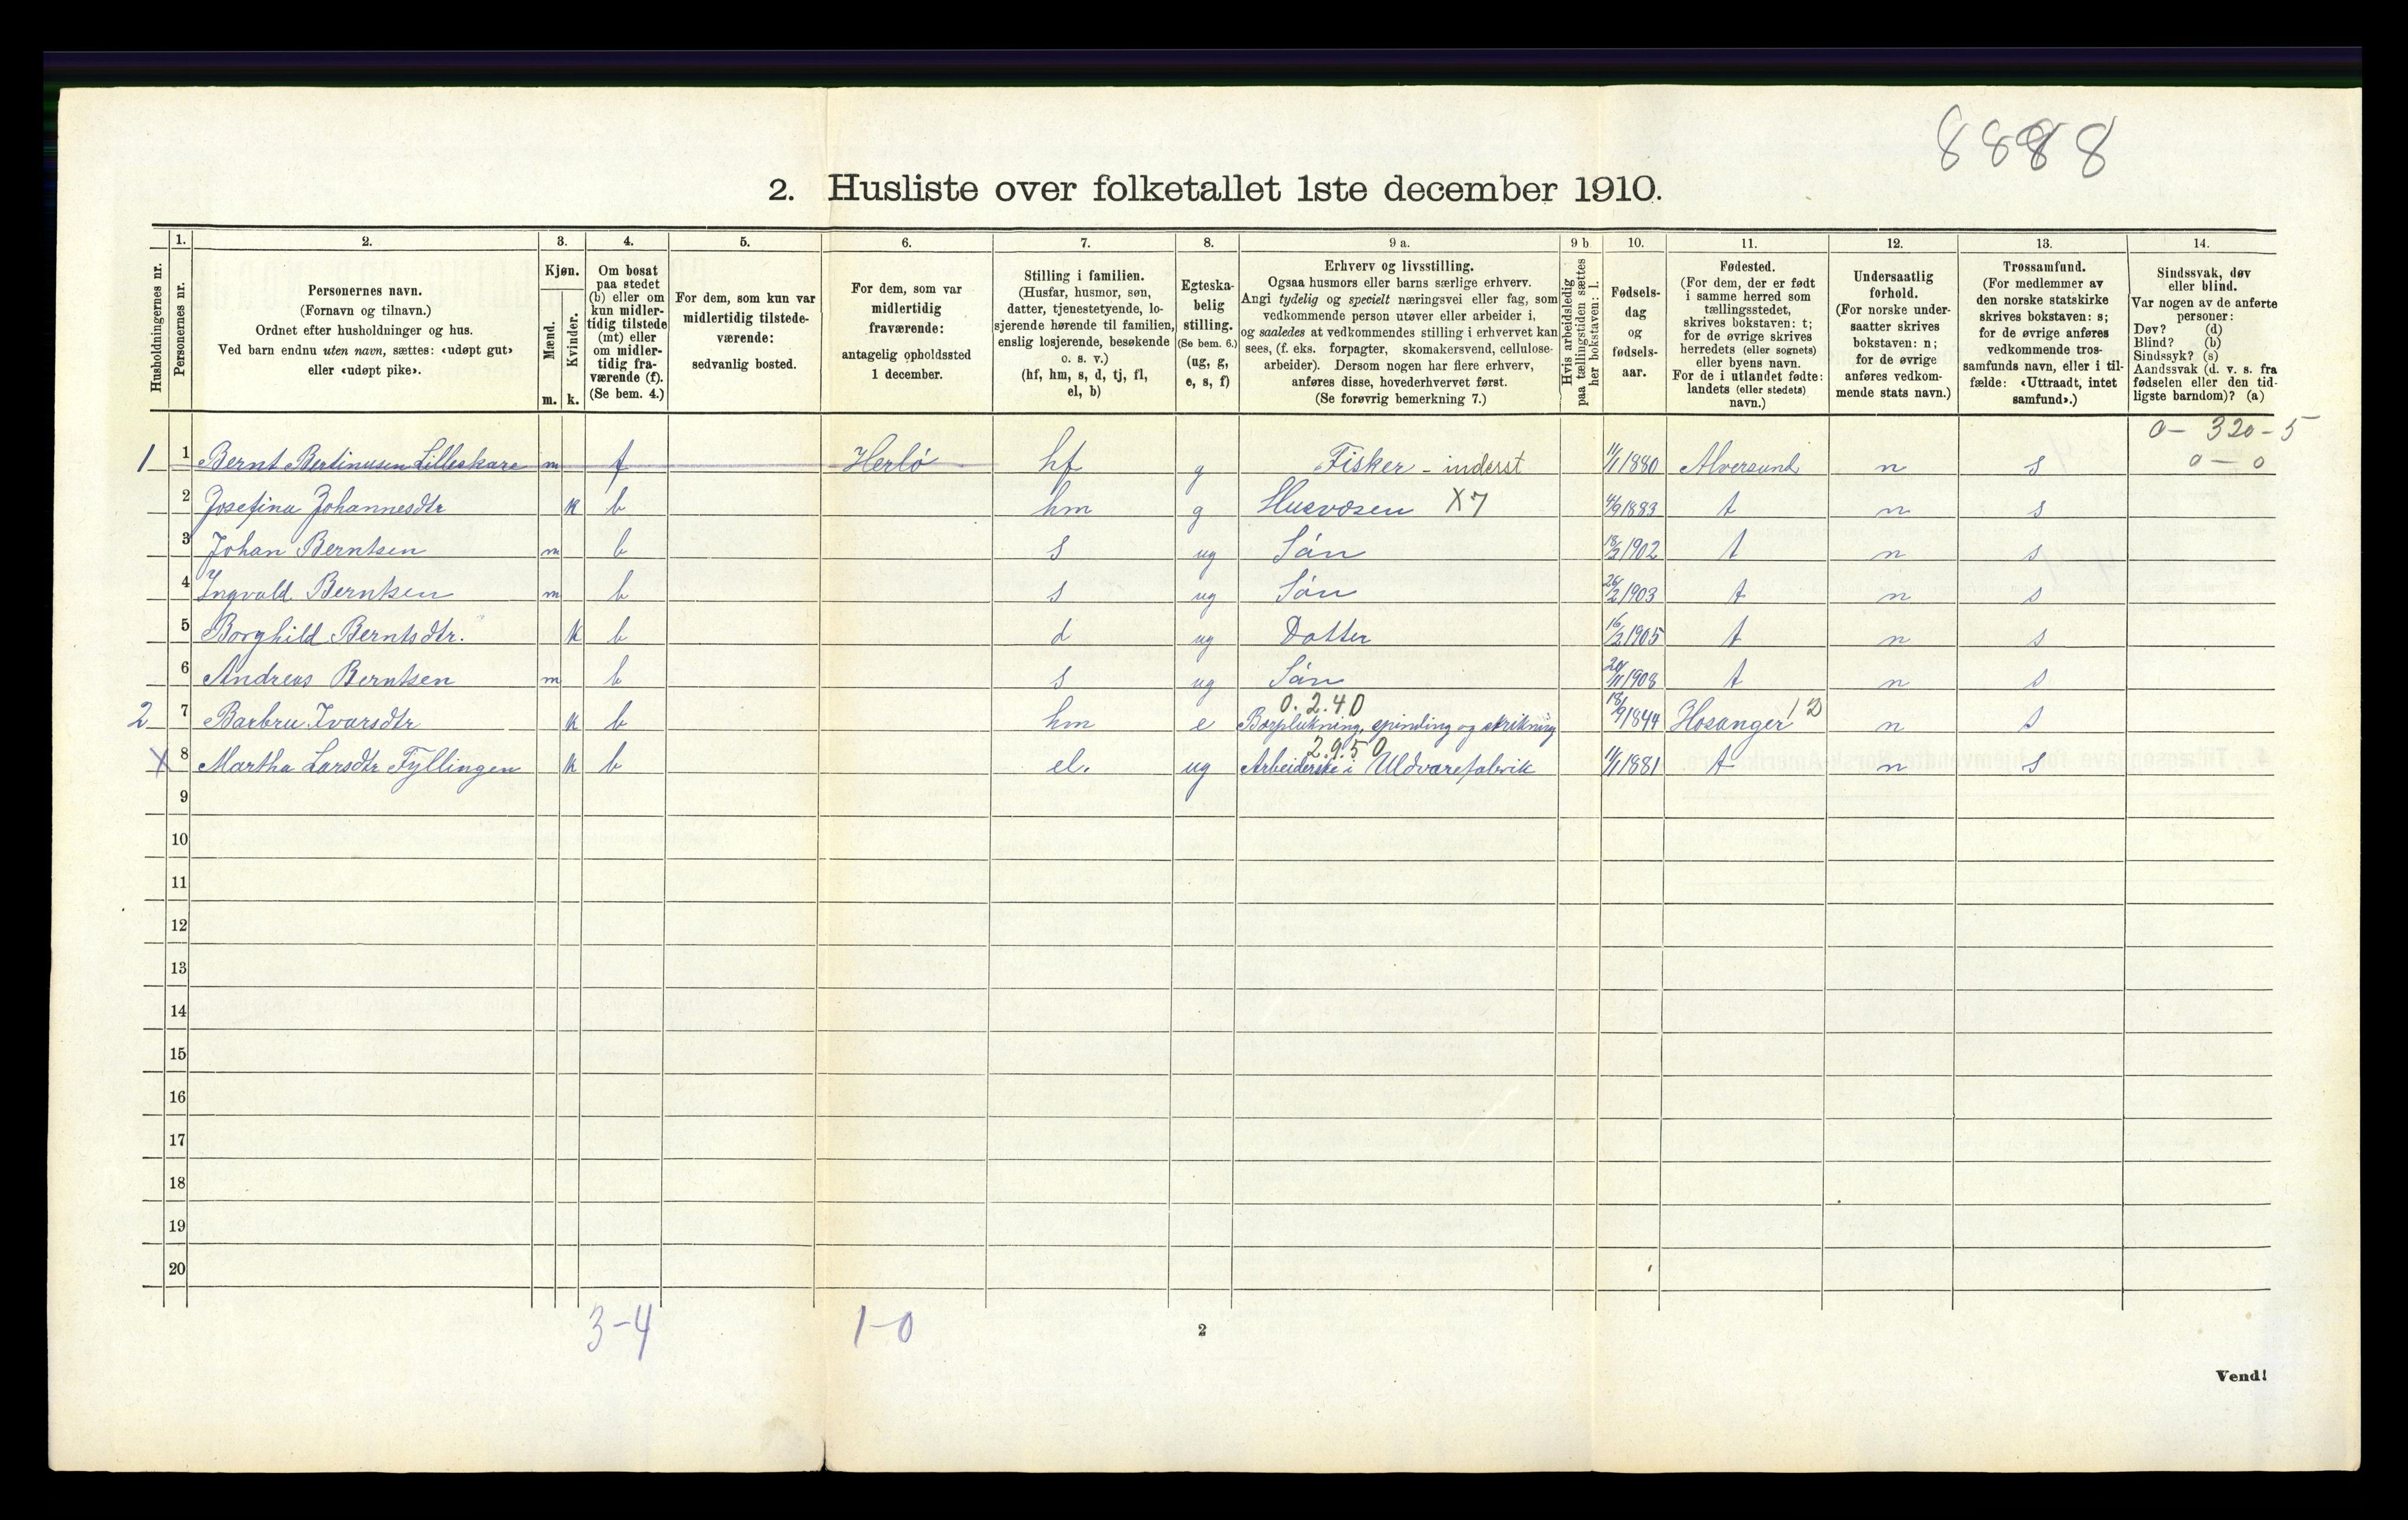 8888
2. Husliste over folketallet 1ste december 1910.
Husholdningernes nr.
1. Personernes nr.
2. Personernes navn.
(Fornavn og tilnavn.)
Ordnet efter husholdninger og hus.
Ved barn endnu uten navn, sættes: «udøpt gut»
eller «udøpt pike».
3. Kjøn.
Mænd. Kvinder.
m. k.
4. Om bosat
paa stedet
(b) eller om
kun midler-
tidig tilstede
(mt) eller
om midler-
tidig fra-
værende (f).
(Se bem. 4.)
5. For dem, som kun var
midlertidig tilstede-
værende:
sedvanlig bosted.
6. For dem, som var
midlertidig
fraværende:
antagelig opholdssted
1 december.
7. Stilling i familien.
(Husfar, husmor, søn,
datter, tjenestetyende, lo-
sjerende hørende til familien,
enslig losjerende, besøkende
o. s. v.)
(hf, hm, s, d, tj, fl,
el, b)
8. Egteska-
belig
stilling.
(Se bem. 6.)
(ug, g,
e, s, f)
9 a. Erhverv og livsstilling.
Ogsaa husmors eller barns særlige erhverv.
Angi tydelig og specielt næringsvei eller fag, som
vedkommende person utøver eller arbeider i,
og saaledes at vedkommendes stilling i erhvervet kan
sees, (f. eks. forpagter, skomakersvend, cellulose-
arbeider). Dersom nogen har flere erhverv,
anføres disse, hovederhvervet først.
(Se forøvrig bemerkning 7.)
9 b Hvis arbeidsledig
paa tællingstiden sættes
her bokstaven: l.
10. Fødsels-
dag
og
fødsels-
aar.
11. Fødested.
(For dem, der er født
i samme herred som
tællingsstedet,
skrives bokstaven: t;
for de øvrige skrives
herredets (eller sognets)
eller byens navn.
For de i utlandet fødte:
landets (eller stedets)
navn.)
12. Undersaatlig
forhold.
(For norske under-
saatter skrives
bokstaven: n;
for de øvrige
anføres vedkom-
mende stats navn.)
13. Trossamfund.
(For medlemmer av
den norske statskirke
skrives bokstaven: s;
for de øvrige anføres
vedkommende tros-
samfunds navn, eller i til-
fælde: «Uttraadt, intet
samfund».)
14. Sindssvak, døv
eller blind.
Var nogen av de anførte
personer:
Døv? (d)
Blind? (b)
Sindssyk? (s)
Aandssvak (d. v. s. fra
fødselen eller den tid-
ligste barndom)? (a)
0 - 320 - 5
1 1 Bernt Bertinusen Lilleskare m f Herlö hf g Fisker - inderst 11/1 1880 Alversund n s 0 - 0
2 Josefina Johannesdtr k b hm g Husvæsen X7 4/9 1883 t n s
3 Johan Berntsen m b s ug Sön 18/2 1902 t n s
4 Ingvald Berntsen m b s ug Sön 26/2 1903 t n s
5 Borghild Berntsdtr. k b d ug Datter 16/2 1905 t n s
6 Andreas Berntsen m b s ug Sön 20/11 1908 t n s
0.2.40
2 7 Barbru Ivarsdtr k b hm e Bærplukning, spinding og strikning 18/9 1844 Hosanger 12 n s
2.9.50
X 8 Martha Larsdtr Fyllingen k b el. ug Arbeiderske i Uldvarefabrik 11/1 1881 t n s
9
10
11
12
13
14
15
16
17
18
19
20
3-4 1-0
2
Vend!